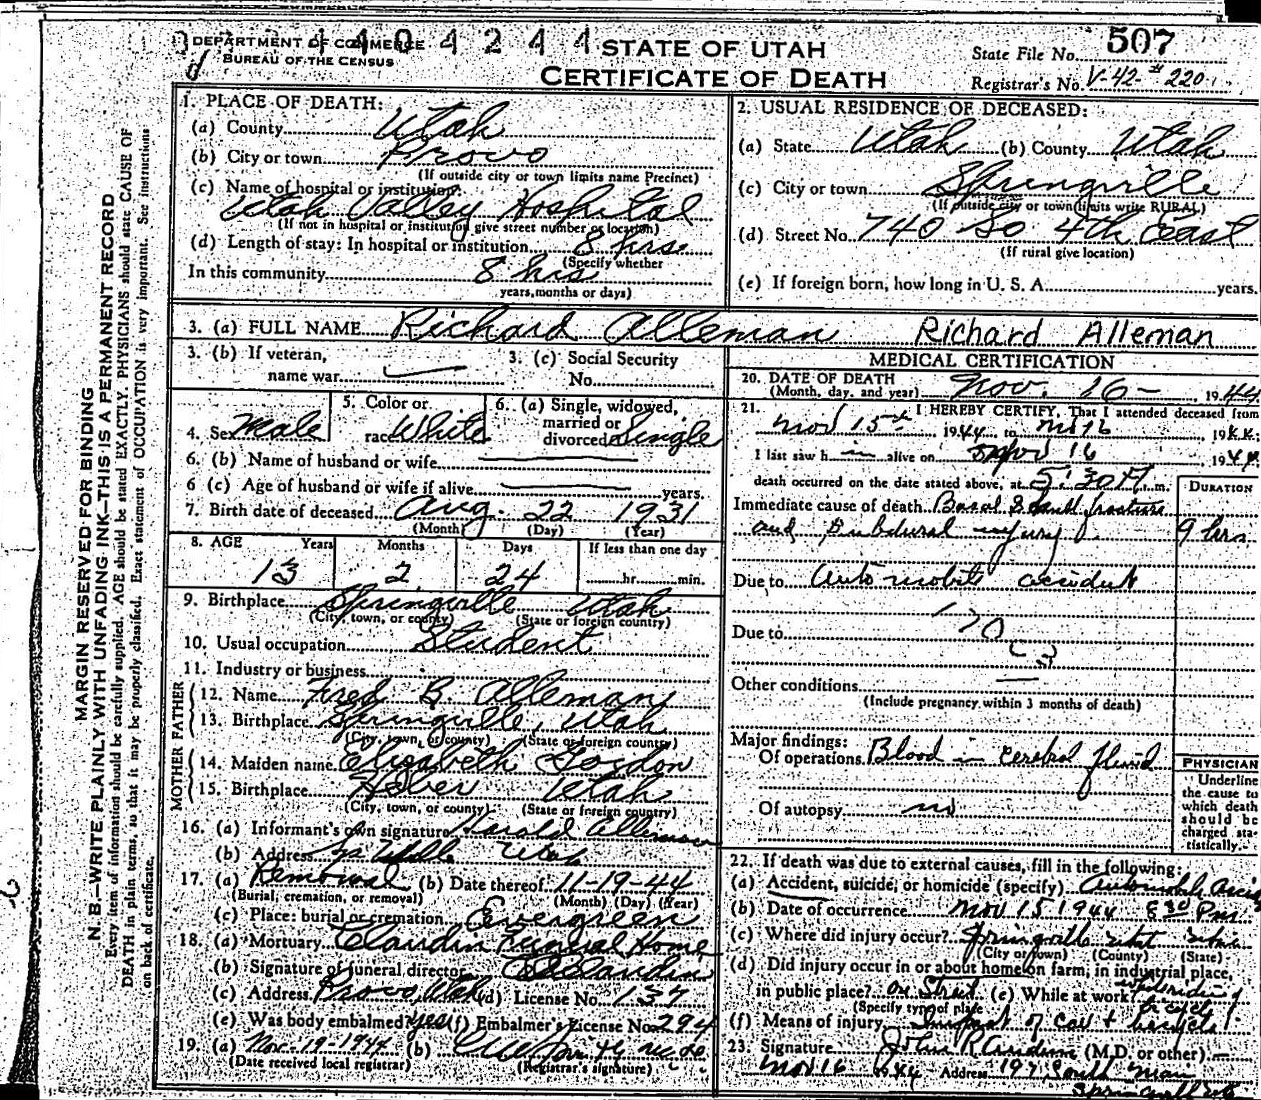 DEPARTMENT OF COMMERCE
BUREAU OF THE CENSUS
4 4 0 4 2 4 4
STATE OF UTAH
CERTIFICATE OF DEATH
State File No. 507
Registrar's No. V-42-#220
MARGIN RESERVED FOR BINDING
N. B.—WRITE PLAINLY WITH UNFADING INK—THIS IS A PERMANENT RECORD
Every item of information should be carefully supplied. AGE should be stated EXACTLY. PHYSICIANS should state CAUSE OF
DEATH in plain terms, so that it may be properly classified. Exact statement of OCCUPATION is very important. See instructions
on back of certificate.
1. PLACE OF DEATH:
(a) County Utah
(b) City or town Provo
(If outside city or town limits name Precinct)
(c) Name of hospital or institution:
Utah Valley Hospital
(If not in hospital or institution give street number or location)
(d) Length of stay: In hospital or institution 8 hrs.
(Specify whether
In this community 8 hrs
years, months or days)
2. USUAL RESIDENCE OF DECEASED:
(a) State Utah (b) County Utah
(c) City or town Springville
(If outside city or town limits write RURAL)
(d) Street No. 740 So 4th East
(If rural give location)
(e) If foreign born, how long in U. S. A. years.
3. (a) FULL NAME Richard Alleman Richard Alleman
3. (b) If veteran,
name war
3. (c) Social Security
No.
4. Sex Male
5. Color or
race White
6. (a) Single, widowed,
married or
divorced Single
6. (b) Name of husband or wife
6 (c) Age of husband or wife if alive years.
7. Birth date of deceased Aug. 22 1931
(Month) (Day) (Year)
8. AGE Years Months Days If less than one day
13 2 24 hr. min.
9. Birthplace Springville Utah
(City, town, or county) (State or foreign country)
10. Usual occupation Student
11. Industry or business
FATHER
12. Name Fred B. Alleman
13. Birthplace Springville, Utah
(City, town, or county) (State or foreign country)
MOTHER
14. Maiden name Elizabeth Gordon
15. Birthplace Heber Utah
(City, town, or county) (State or foreign country)
16. (a) Informant's own signature Harold Alleman
(b) Address Utah
17. (a) Removal (b) Date thereof 11-19-44
(Burial, cremation, or removal) (Month) (Day) (Year)
(c) Place: burial or cremation Evergreen
18. (a) Mortuary Claudin Funeral Home
(b) Signature of funeral director Claudin
(c) Address Provo, Utah (d) License No. 137
(e) Was body embalmed yes (f) Embalmer's License No. 294
19. (a) Nov-19-1944 (b)
(Date received local registrar) (Registrar's signature)
MEDICAL CERTIFICATION
20. DATE OF DEATH
(Month, day, and year) Nov. 16 - 1944
21. I HEREBY CERTIFY, That I attended deceased from
Nov 15th 1944 to Nov 16 1944;
I last saw h im alive on Nov 16 1944;
death occurred on the date stated above, at 5:30 A m.
DURATION
Immediate cause of death Basal Skull fracture
and Subdural injury 9 hrs
Due to Automobile accident
170
Due to
Other conditions
(Include pregnancy within 3 months of death)
Major findings:
Of operations Blood in cerebral fluid
Of autopsy no
PHYSICIAN
Underline
the cause to
which death
should be
charged sta-
tistically.
22. If death was due to external causes, fill in the following:
(a) Accident, suicide, or homicide (specify) Automobile Accid
(b) Date of occurrence Nov 15 1944 8:30 P.m.
(c) Where did injury occur? Springville Utah Utah
(City or town) (County) (State)
(d) Did injury occur in or about home, on farm, in industrial place,
in public place? On Street (e) While at work? riding bicycle
(Specify type of place)
(f) Means of injury Impact of car + bicycle
23. Signature John R. (M.D. or other)
Nov 16 1944 Address 197 South Main
Springville